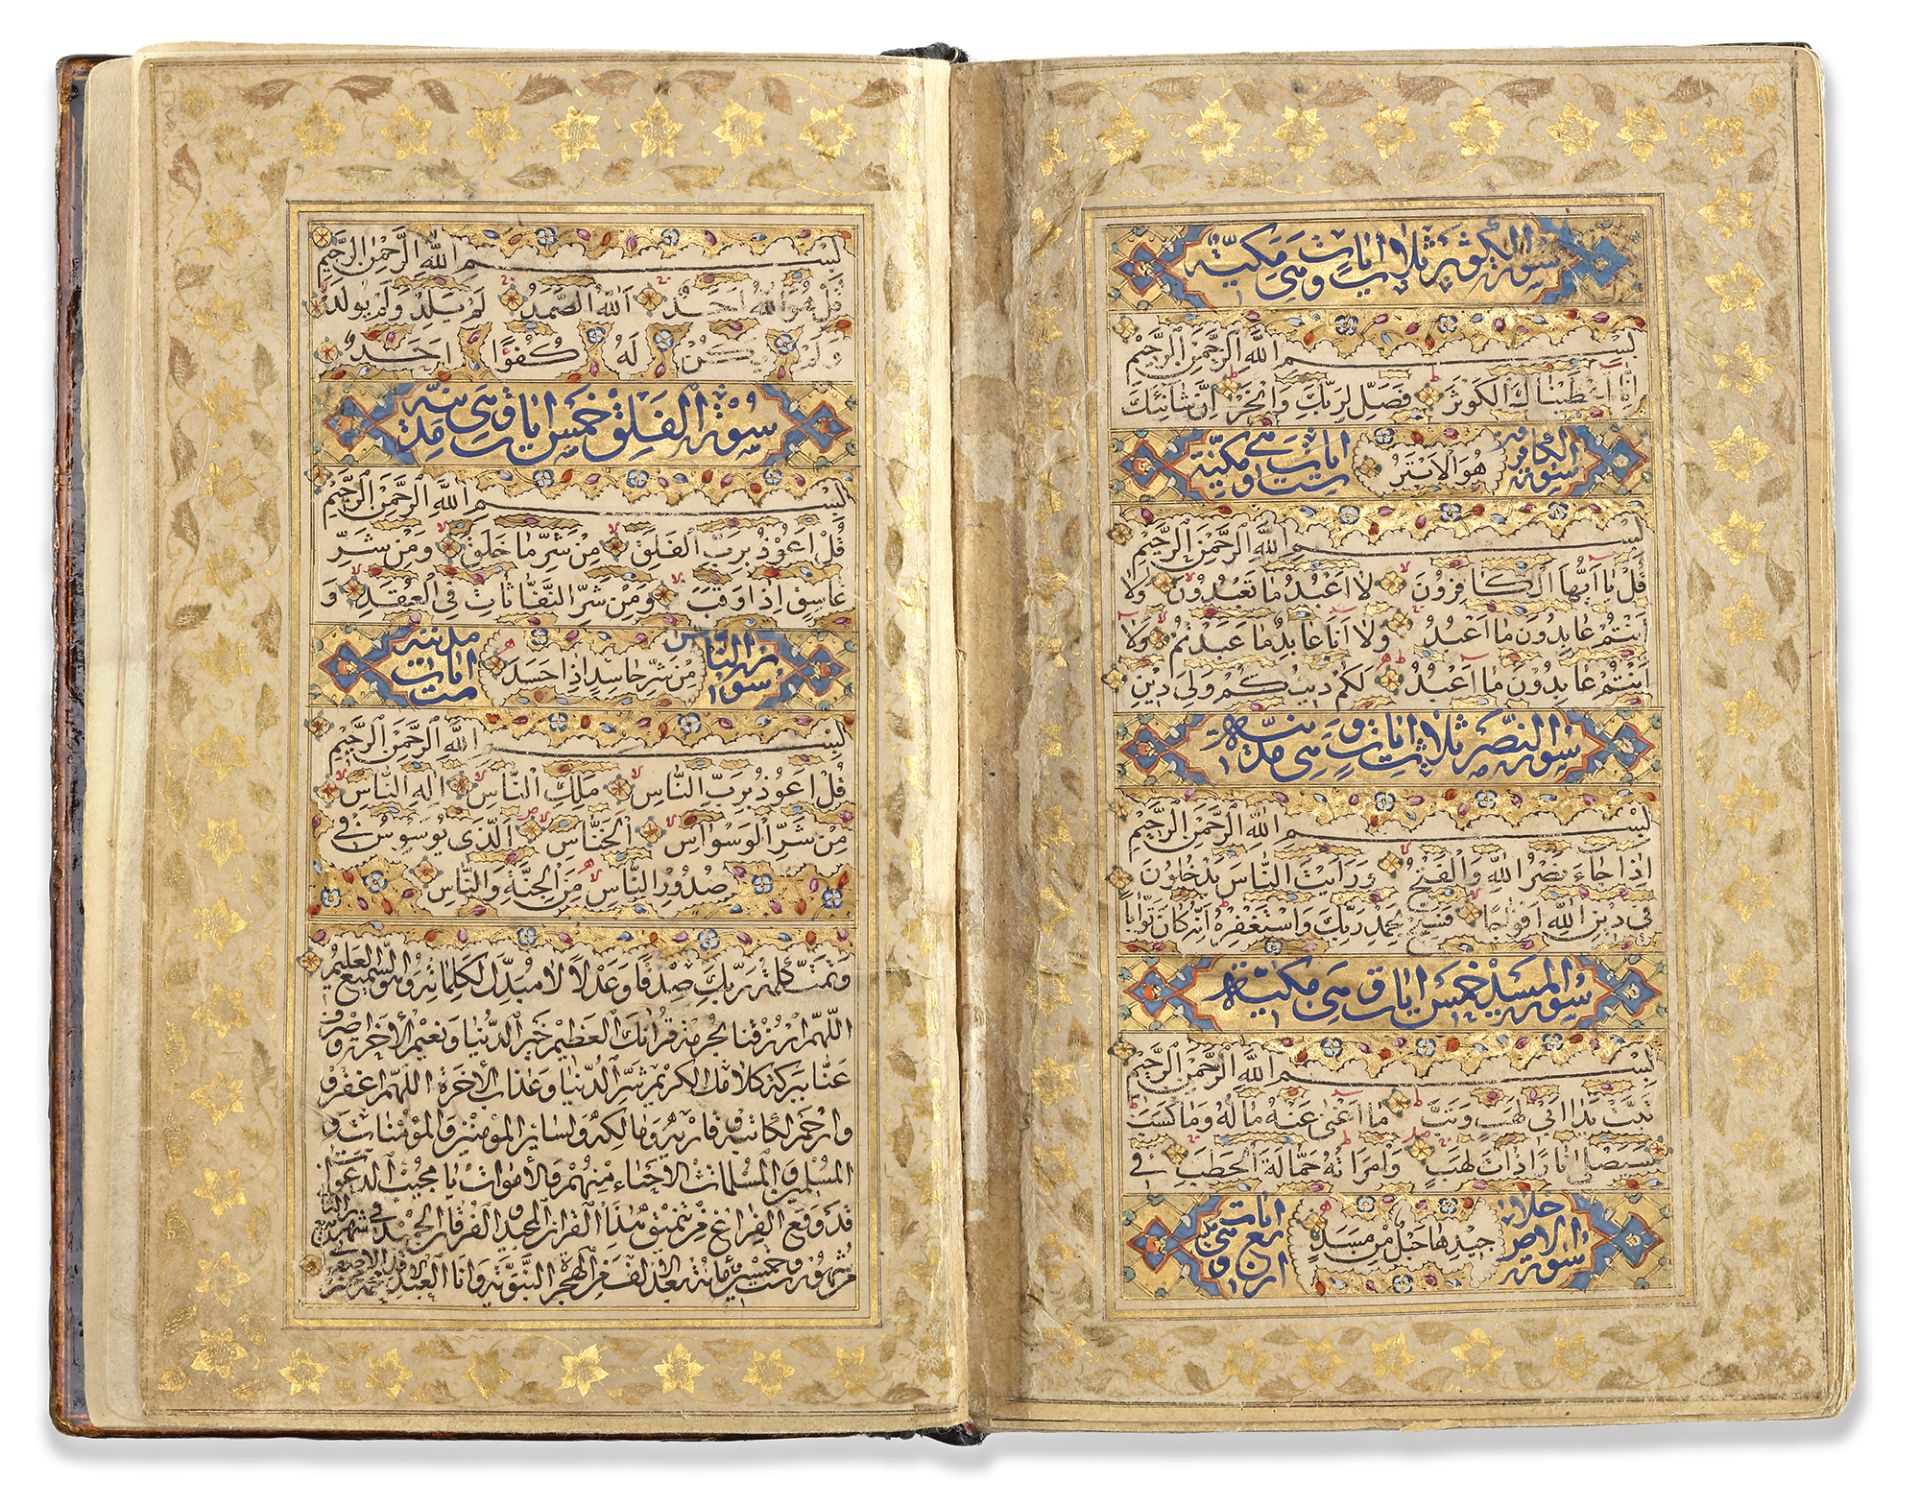 سورة الكوثر ثلاث ايات وهى مكية
بسم الله الرحمن الرحيم
اِنَّا اَعْطَيْنَاكَ الْكَوْثَرَ فَصَلِّ لِرَبِّكَ وَانْحَرْ اِنَّ شَانِئَكَ
هُوَ الْاَبْتَرُ
سورة الكافرون ست ايات وهى مكية
بسم الله الرحمن الرحيم
قُلْ يَا اَيُّهَا الْكَافِرُونَ لَا اَعْبُدُ مَا تَعْبُدُونَ وَلَا
اَنْتُمْ عَابِدُونَ مَا اَعْبُدُ وَلَا اَنَا عَابِدٌ مَا عَبَدْتُمْ وَلَا
اَنْتُمْ عَابِدُونَ مَا اَعْبُدُ لَكُمْ دِينُكُمْ وَلِىَ دِينِ
سورة النصر ثلاث ايات وهى مدنية
بسم الله الرحمن الرحيم
اِذَا جَاءَ نَصْرُ اللهِ وَالْفَتْحُ وَرَاَيْتَ النَّاسَ يَدْخُلُونَ
فِى دِينِ اللهِ اَفْوَاجًا فَسَبِّحْ بِحَمْدِ رَبِّكَ وَاسْتَغْفِرْهُ اِنَّهُ كَانَ تَوَّابًا
سورة المسد خمس ايات وهى مكية
بسم الله الرحمن الرحيم
تَبَّتْ يَدَا اَبِى لَهَبٍ وَتَبَّ مَا اَغْنَى عَنْهُ مَالُهُ وَمَا كَسَبَ
سَيَصْلَى نَارًا ذَاتَ لَهَبٍ وَامْرَاَتُهُ حَمَّالَةَ الْحَطَبِ فِى
جِيدِهَا حَبْلٌ مِنْ مَسَدٍ
سورة الاخلاص اربع ايات وهى
بسم الله الرحمن الرحيم
قُلْ هُوَ اللهُ اَحَدٌ اَللهُ الصَّمَدُ لَمْ يَلِدْ وَلَمْ يُولَدْ
وَلَمْ يَكُنْ لَهُ كُفُوًا اَحَدٌ
سورة الفلق خمس ايات وهى مدنية
بسم الله الرحمن الرحيم
قُلْ اَعُوذُ بِرَبِّ الْفَلَقِ مِنْ شَرِّ مَا خَلَقَ وَمِنْ شَرِّ
غَاسِقٍ اِذَا وَقَبَ وَمِنْ شَرِّ النَّفَّاثَاتِ فِى الْعُقَدِ وَ
مِنْ شَرِّ حَاسِدٍ اِذَا حَسَدَ
سورة الناس ست ايات مدنية
بسم الله الرحمن الرحيم
قُلْ اَعُوذُ بِرَبِّ النَّاسِ مَلِكِ النَّاسِ اِلَهِ النَّاسِ
مِنْ شَرِّ الْوَسْوَاسِ الْخَنَّاسِ اَلَّذِى يُوَسْوِسُ فِى
صُدُورِ النَّاسِ مِنَ الْجِنَّةِ وَالنَّاسِ
وَتَمَّتْ كَلِمَةُ رَبِّكَ صِدْقًا وَعَدْلًا لَا مُبَدِّلَ لِكَلِمَاتِهِ وَهُوَ السَّمِيعُ الْعَلِيمُ
اللهم ارزقنا بحرمة قرانك العظيم خير الدنيا ونعيم الاخرة واصرف
عنا ببركة كلامك الكريم شر الدنيا وعذاب الاخرة اللهم اغفر و
وارحم لكاتبه وقاريه ومالكه ولساير المؤمنين والمؤمنات و
المسلمين والمسلمات الاحياء منهم والاموات يا مجيب الدعوات
قد وقع الفراغ من تنميق هذا القران المجيد والفرقان الحميد فى شهر
من شهور وخمسين ومائة بعد الف من الهجرة النبوية وانا العبد